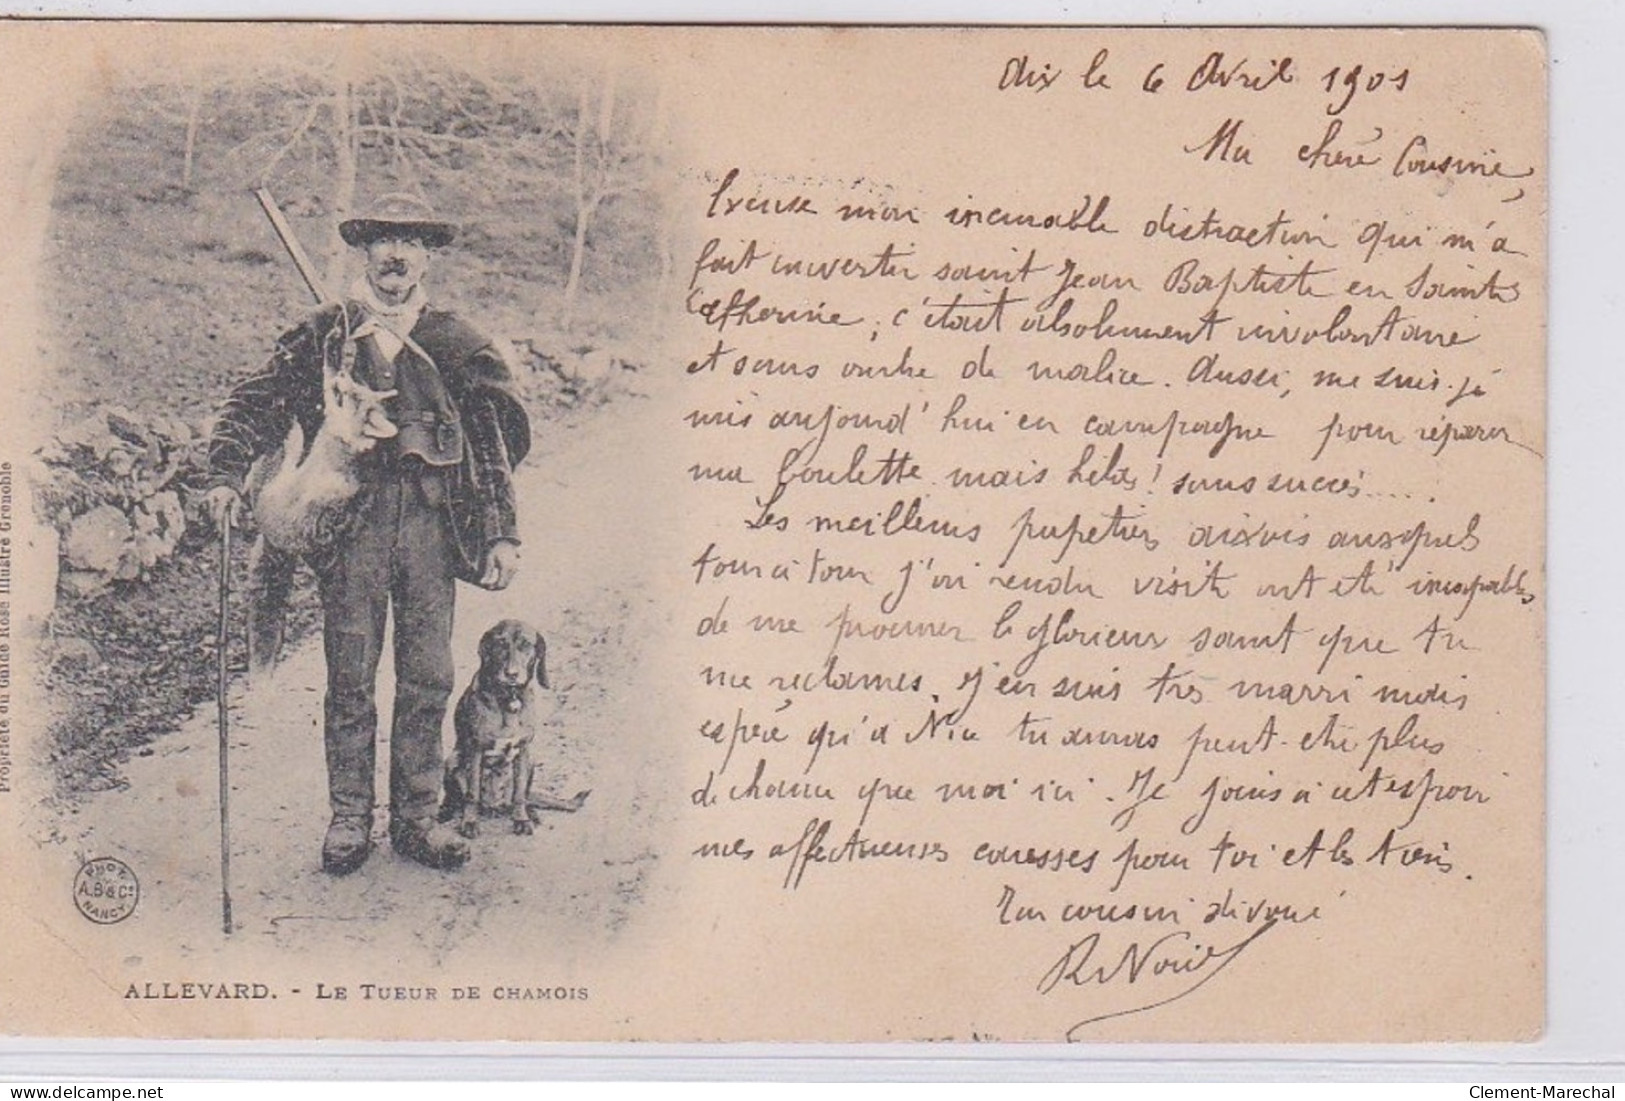 Aix le 6 Avril 1901
Ma chère Cousine,
Excuse mon incurable distraction qui m'a
fait invertir saint Jean Baptiste en Sainte
Catherine, c'était absolument involontaire
et sans ombre de malice. Aussi, me suis-je
mis aujourd'hui en campagne pour réparer
ma boulette mais hélas! sans succès.....
Les meilleurs papetiers aixois auxquels
tour à tour j'ai rendu visite ont été incapables
de me procurer le glorieux saint que tu
me réclames. J'en suis très marri mais
espère qu'à Nice tu auras peut-être plus
de chance que moi ici. Je joins à cet espoir
mes affectueuses caresses pour toi et les tiens.
Ton cousin dévoué
Propriété du Guide Rose Illustré Grenoble
PHOT.
A.B & Cie
NANCY
ALLEVARD. - LE TUEUR DE CHAMOIS
Clement-Marechal